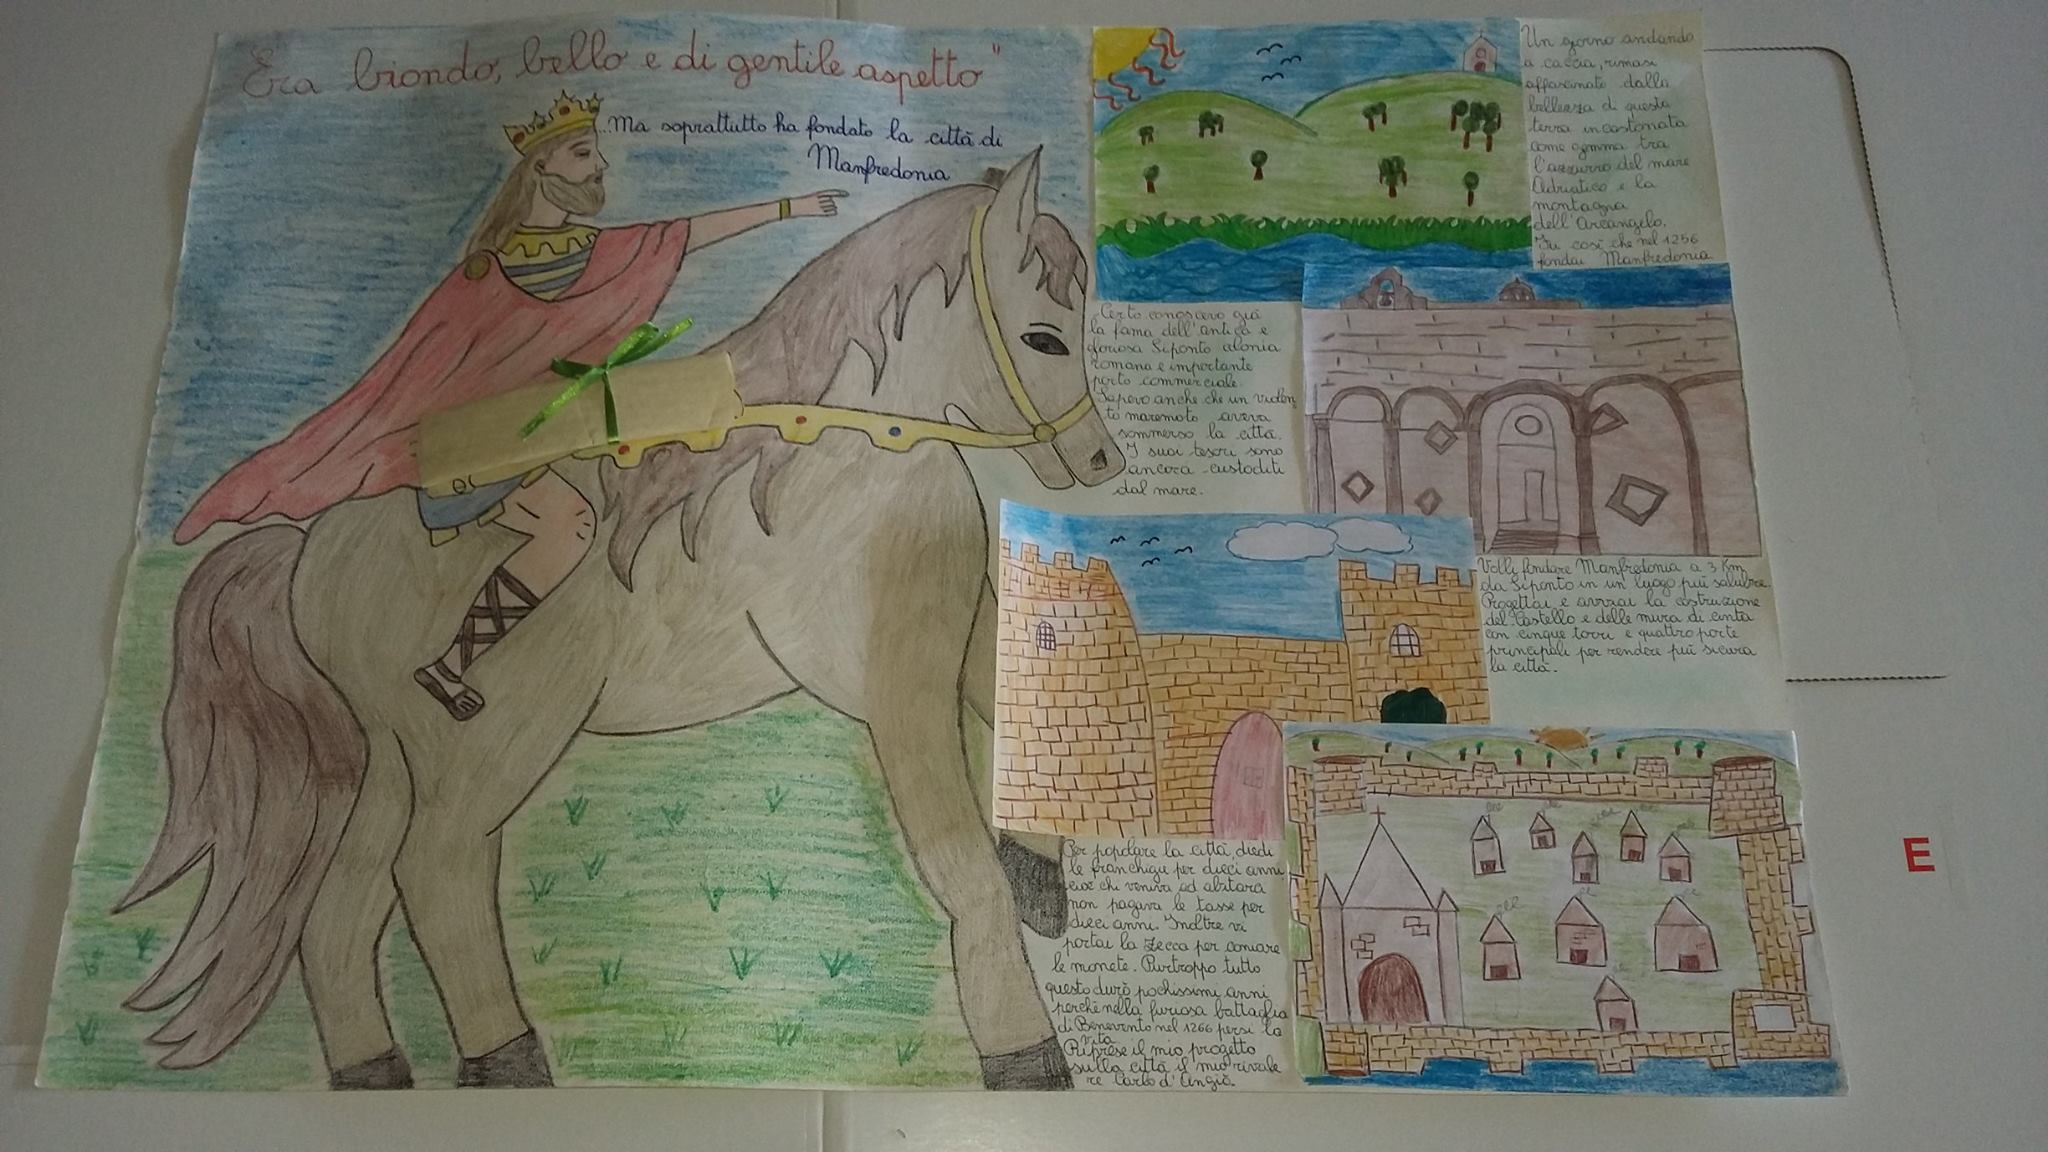 "Era biondo, bello e di gentile aspetto"
...Ma soprattutto ha fondato la città di
Manfredonia
Un giorno andando
a caccia, rimasi
affascinato dalla
bellezza di questa
terra incastonata
come gemma tra
l'azzurro del mare
Adriatico e la
montagna
dell'Arcangelo.
Fu così che nel 1256
fondai Manfredonia
Certo conoscevo già
la fama dell'antica e
gloriosa Siponto colonia
romana e importante
porto commerciale.
Sapevo anche che un violen
to maremoto aveva
sommerso la città.
I suoi tesori sono
ancora custoditi
dal mare.
Volli fondare Manfredonia a 3 Km
da Siponto in un luogo più salubre.
Progettai e avviai la costruzione
del Castello e delle mura di cinta
con cinque torri e quattro porte
principali per rendere più sicura
la città.
Per popolare la città, diedi
le franchigie per dieci anni
cioè chi veniva ad abitare
non pagava le tasse per
dieci anni. Inoltre vi
portai la zecca per coniare
le monete. Purtroppo tutto
questo durò pochissimi anni
perchè nella furiosa battaglia
di Benevento nel 1266 persi la
vita.
Riprese il mio progetto
sulla città il mio rivale
re Carlo d'Angiò.
E